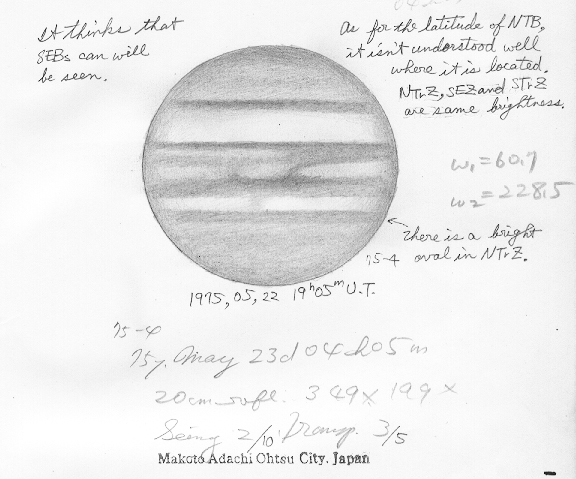 It thinks that
SEBs can will
be seen.
As for the latitude of NTB,
it isn't understood well
where it is located.
NTrZ, SEZ and STrZ
are same brightness.
ω1=60.7
ω2=228.5
There is a bright
oval in NTrZ.
75-4
1975, 05, 22 19h05m U.T.
75-4
75y. May 23d 04h05m
20cm refl. 349x 199x
Seeing 2/10 Transp. 3/5
Makoto Adachi Ohtsu City. Japan